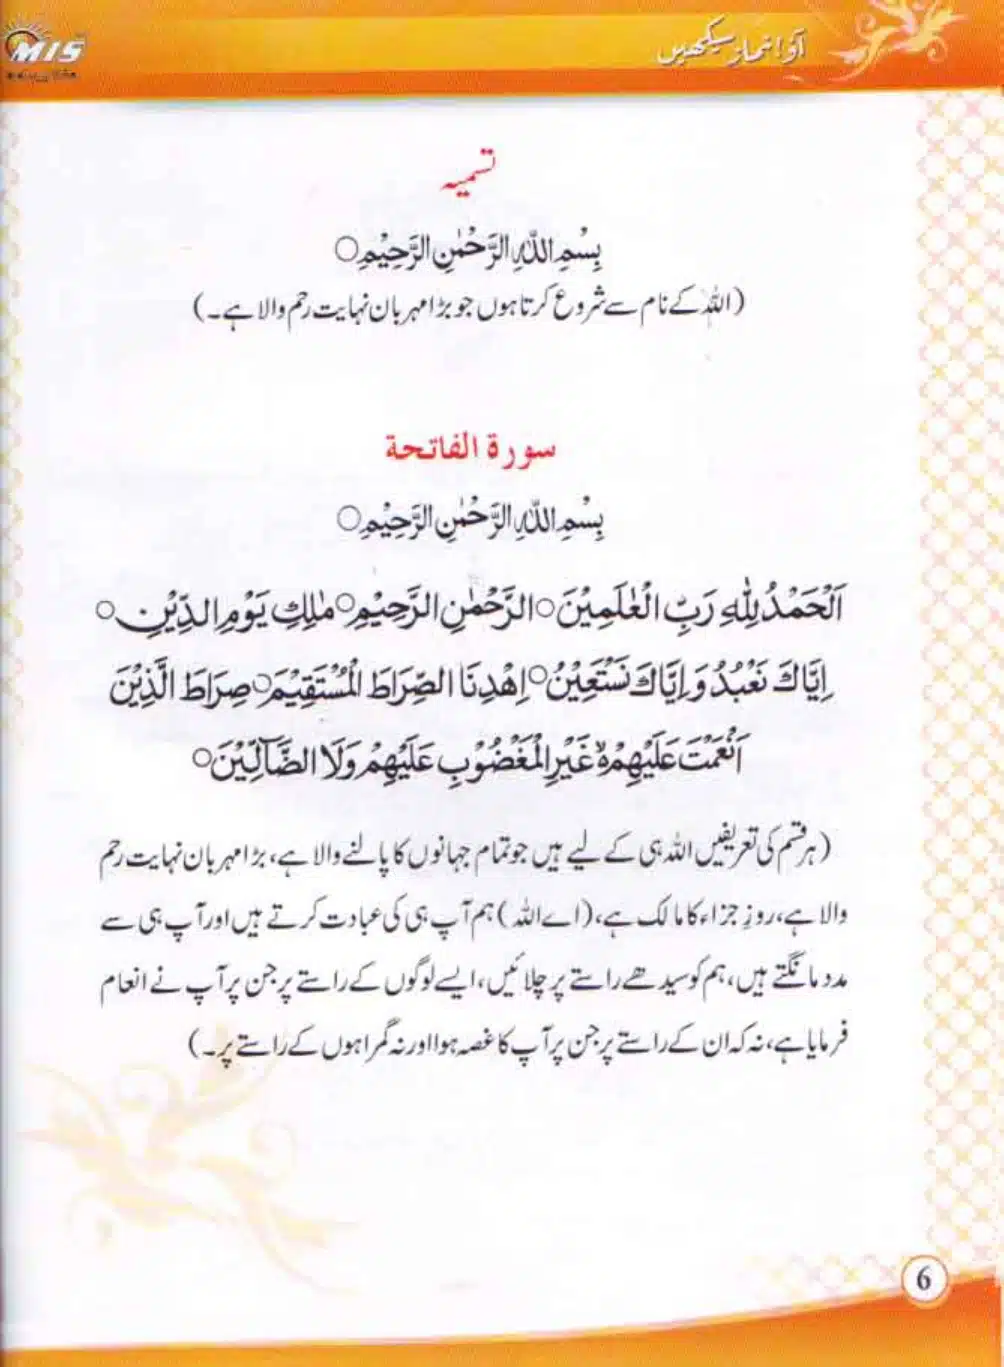 MIS
آؤ! نماز سیکھیں
تسمیہ
بِسْمِ اللّٰہِ الرَّحْمٰنِ الرَّحِیْمِ○
(اللہ کے نام سے شروع کرتا ہوں جو بڑا مہربان نہایت رحم والا ہے۔)
سورة الفاتحة
بِسْمِ اللّٰہِ الرَّحْمٰنِ الرَّحِیْمِ○
اَلْحَمْدُ لِلّٰهِ رَبِّ الْعٰلَمِیْنَ○ الرَّحْمٰنِ الرَّحِیْمِ○ مٰلِكِ یَوْمِ الدِّیْنِ○
اِیَّاكَ نَعْبُدُ وَ اِیَّاكَ نَسْتَعِیْنُ○ اِهْدِنَا الصِّرَاطَ الْمُسْتَقِیْمَ○ صِرَاطَ الَّذِیْنَ
اَنْعَمْتَ عَلَیْهِمْ ۙ۬ غَیْرِ الْمَغْضُوْبِ عَلَیْهِمْ وَلَا الضَّآلِّیْنَ○
(ہر قسم کی تعریفیں اللہ ہی کے لیے ہیں جو تمام جہانوں کا پالنے والا ہے، بڑا مہربان نہایت رحم
والا ہے، روزِ جزاء کا مالک ہے، (اے اللہ) ہم آپ ہی کی عبادت کرتے ہیں اور آپ ہی سے
مدد مانگتے ہیں، ہم کو سیدھے راستے پر چلائیں، ایسے لوگوں کے راستے پر جن پر آپ نے انعام
فرمایا ہے، نہ کہ ان کے راستے پر جن پر آپ کا غصہ ہوا اور نہ گمراہوں کے راستے پر۔)
6